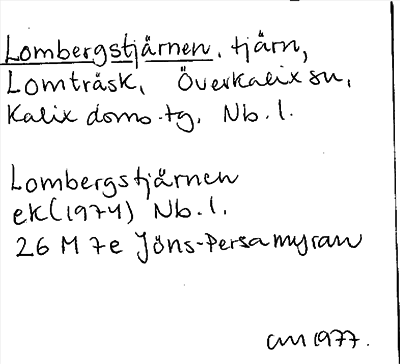 Lombergstjärnen, tjärn,
Lomträsk, Överkalix sn,
Kalix doms.tg, Nb. l.
Lombergstjärnen
ek (1974) Nb. l.
26 M 7e Jöns-Persamyran
CM 1977.